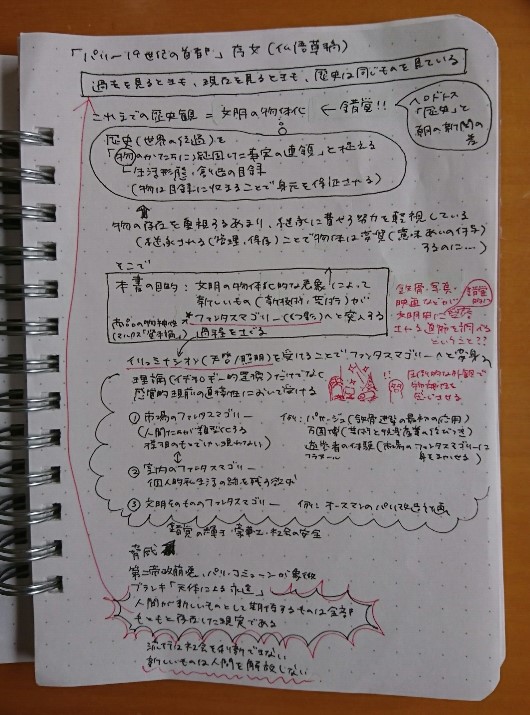 「パリー19世紀の首都」序文(仏語草稿)
過去を見るときも、現在を見るときも、歴史は同じものを見ている
これまでの歴史観 = 文明の物体化 ← 錯覚!!
ヘロドトス
「歴史」と
朝の新聞の
差
歴史(世界の経過)を
「物のかたちに凝固した事実の連鎖」と捉える
「生活形態・創造の目録
(物は目録に収まることで身元を保証される)
物の存在を重視するあまり、継承に費す努力を軽視している
(継承される(管理、保存)ことで物体は変質(意味あいの付与)
するのに…)
そこで
本書の目的:文明の物体化的な表象によって
新しいもの(新技術、芸術)が
ファンタスマゴリー(幻像)へと突入する
過程をたどる
商品の物神性
(マルクス「資本論」)
鉄骨・写真・
映画などが
錯覚
的に
文明史に登録
される道筋を調べる
ということ??
イリュミナシオン(天啓/照明)を受けることでファンタスマゴリーへと変身
理論(イデオロギー的置換)だけでなく
感覚的現前の直接性において受ける
圧倒的な外観で
物神性を
感じさせる
① 市場のファンタスマゴリー
(人間たちが類型である
様相のもとでしか現われない)
例:パサージュ(鉄骨建築の最初の使用)
万国博(芸術と娯楽産業の結びつき)
遊歩者の体験(市場のファンタスマゴリーに
フラヌール
身をまかせる)
② 室内のファンタスマゴリー
個人的私生活の跡を残す欲求
③ 文明そのもののファンタスマゴリー 例:オースマンのパリ改造計画
錯覚の輝き・豪華さ・社会の安全
脅威
第二帝政崩壊、パリ・コミューンが象徴
ブランキ「天体による永遠」
人間が新しいものとして期待するものは全部
もともと存在した現実である
流行は社会を刷新できない
新しいものは人間を解放しない